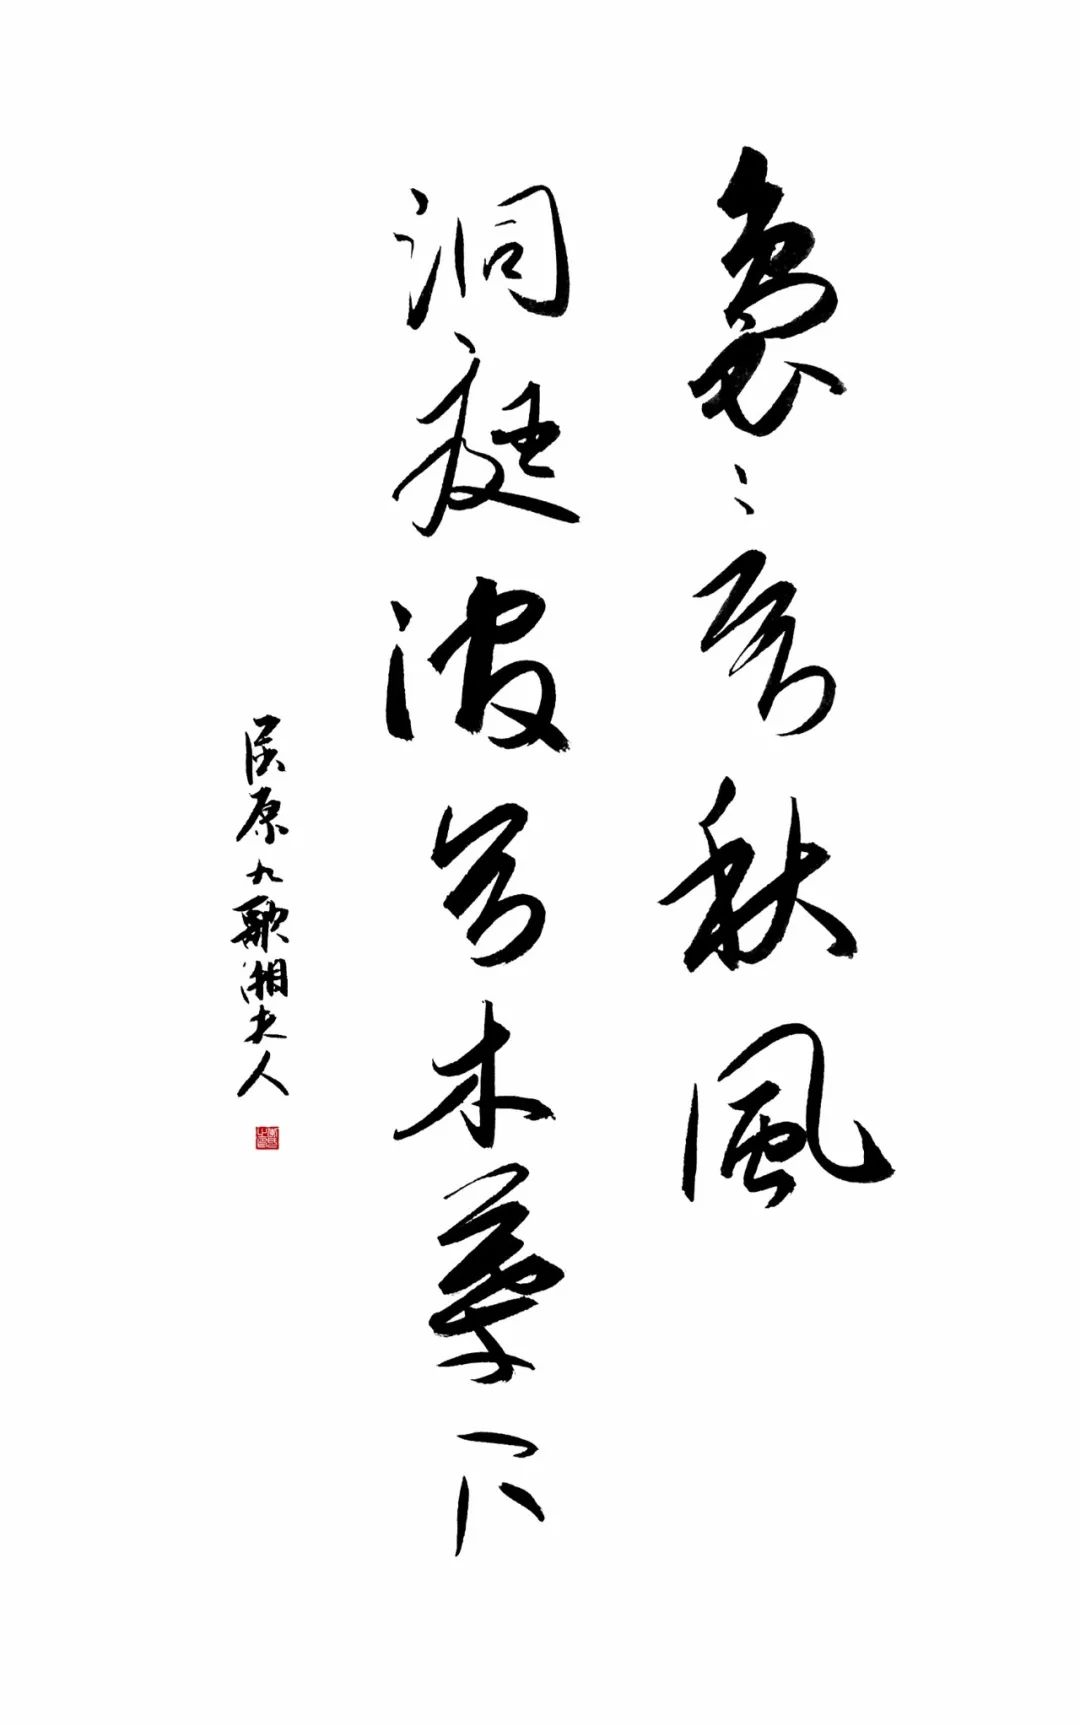 袅〻兮秋風
洞庭波兮木葉下
屈原九歌湘夫人